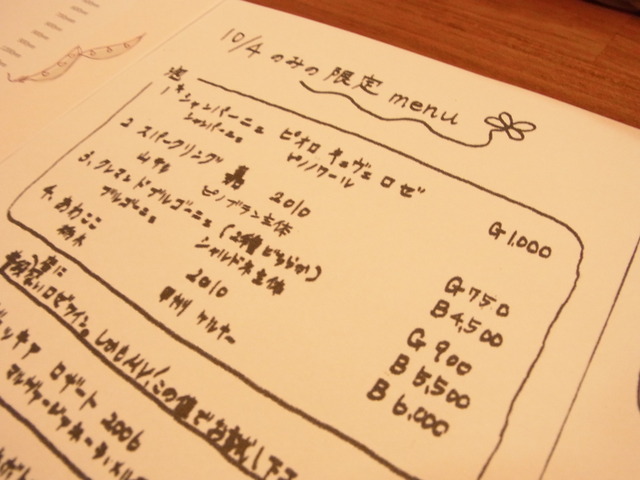 10/4 のみの 限定 menu
泡
1 シャンパーニュ ピオロ キュヴェ ロゼ G 1,000
シャンパーニュ ピノノワール
2 スパークリング 嘉 2010 G 750
山形 ピノブラン主体 B 4,500
3. クレマン ド ブルゴーニュ (2種どちらか) G 900
ブルゴーニュ シャルドネ主体 B 5,500
4. あわここ 2010 B 6,000
栃木 甲州 ケルナー
ロゼワイン。しかしAIV!この値でお試し下さ
ロザート 2006